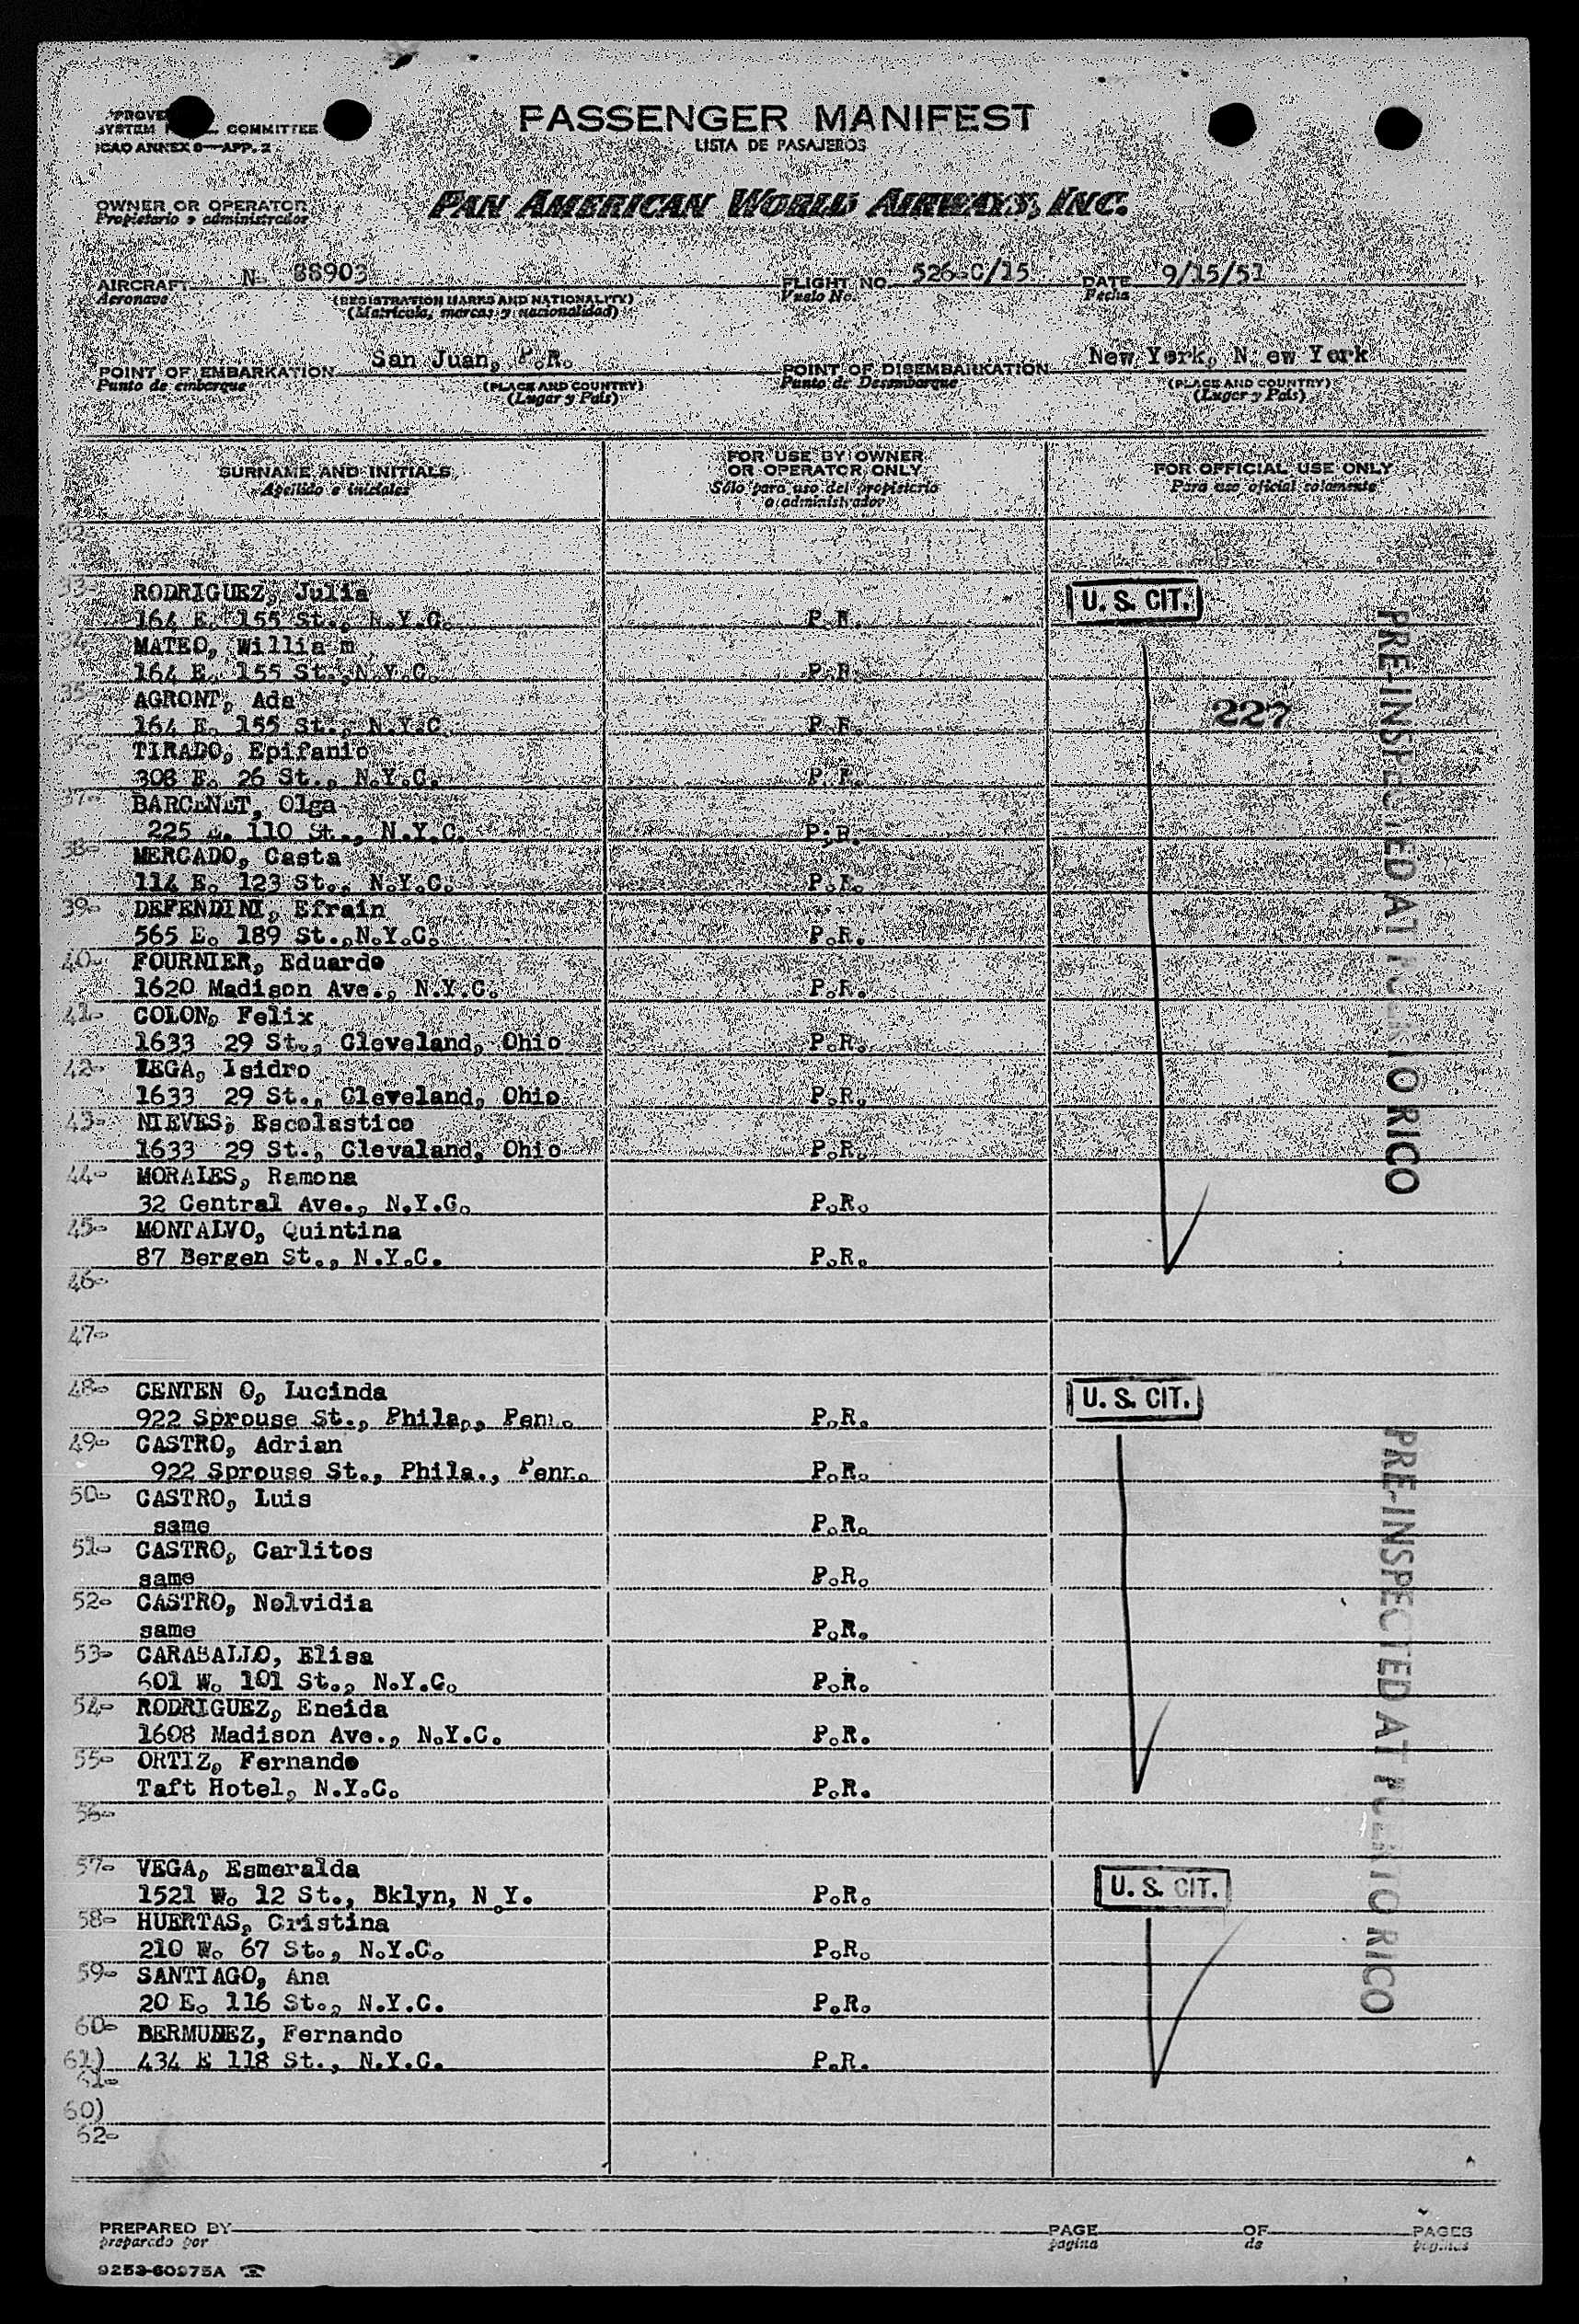 SYSTEM COMMITTEE
ICAO ANNEX 9—APP. 2
PASSENGER MANIFEST
LISTA DE PASAJEROS
OWNER OR OPERATOR
Propietario o administrador
PAN AMERICAN WORLD AIRWAYS, INC.
AIRCRAFT N- 88903 FLIGHT NO. 526-C/15 DATE 9/15/51
Aeronave (REGISTRATION MARKS AND NATIONALITY) Vuelo No. Fecha
(Matricula, marcas y nacionalidad)
POINT OF EMBARKATION San Juan, P.R. POINT OF DISEMBARKATION New York, N. ew York
Punto de embarque (PLACE AND COUNTRY) Punto de Desembarque (PLACE AND COUNTRY)
(Lugar y Pais) (Lugar y Pais)
SURNAME AND INITIALS FOR USE BY OWNER OR OPERATOR ONLY FOR OFFICIAL USE ONLY
Apellido e iniciales Sólo para uso del propietario o administrador Para uso oficial solamente
33- RODRIGUEZ, Julia U. S. CIT.
164 E. 155 St., N.Y.C. P.R.
MATEO, Willia m
164 E. 155 St., N.Y.C. P.R.
35- AGRONT, Ada 227
164 E. 155 St., N.Y.C P.R.
TIRADO, Epifanio
308 E. 26 St., N.Y.C. P.R.
37- BARCENET, Olga
225 E. 110 St., N.Y.C. P.R.
38- MERCADO, Casta
114 E. 123 St., N.Y.C. P.R.
39- DEFENDINI, Efrain
565 E. 189 St., N.Y.C. P.R.
40- FOURNIER, Eduardo
1620 Madison Ave., N.Y.C. P.R.
41- COLON, Felix
1633 29 St., Cleveland, Ohio P.R.
42- VEGA, Isidro
1633 29 St., Cleveland, Ohio P.R.
43- NIEVES, Escolastico
1633 29 St., Clevaland, Ohio P.R.
44- MORALES, Ramona
32 Central Ave., N.Y.C. P.R.
45- MONTALVO, Quintina
87 Bergen St., N.Y.C. P.R.
46-
47-
PRE-INSPECTED AT PUERTO RICO
48- CENTEN O, Lucinda U. S. CIT.
922 Sprouse St., Phila., Penn. P.R.
49- CASTRO, Adrian
922 Sprouse St., Phila., Penn. P.R.
50- CASTRO, Luis
same P.R.
51- CASTRO, Carlitos
same P.R.
52- CASTRO, Nelvidia
same P.R.
53- CARABALLO, Elisa
601 W. 101 St., N.Y.C. P.R.
54- RODRIGUEZ, Eneida
1608 Madison Ave., N.Y.C. P.R.
55- ORTIZ, Fernando
Taft Hotel, N.Y.C. P.R.
56-
PRE-INSPECTED AT PUERTO RICO
57- VEGA, Esmeralda U. S. CIT.
1521 W. 12 St., Bklyn, N.Y. P.R.
58- HUERTAS, Cristina
210 W. 67 St., N.Y.C. P.R.
59- SANTIAGO, Ana
20 E. 116 St., N.Y.C. P.R.
60- BERMUDEZ, Fernando
61) 434 E 118 St., N.Y.C. P.R.
61-
60)
62-
PREPARED BY PAGE OF PAGES
preparado por pagina de paginas
9253-60975A